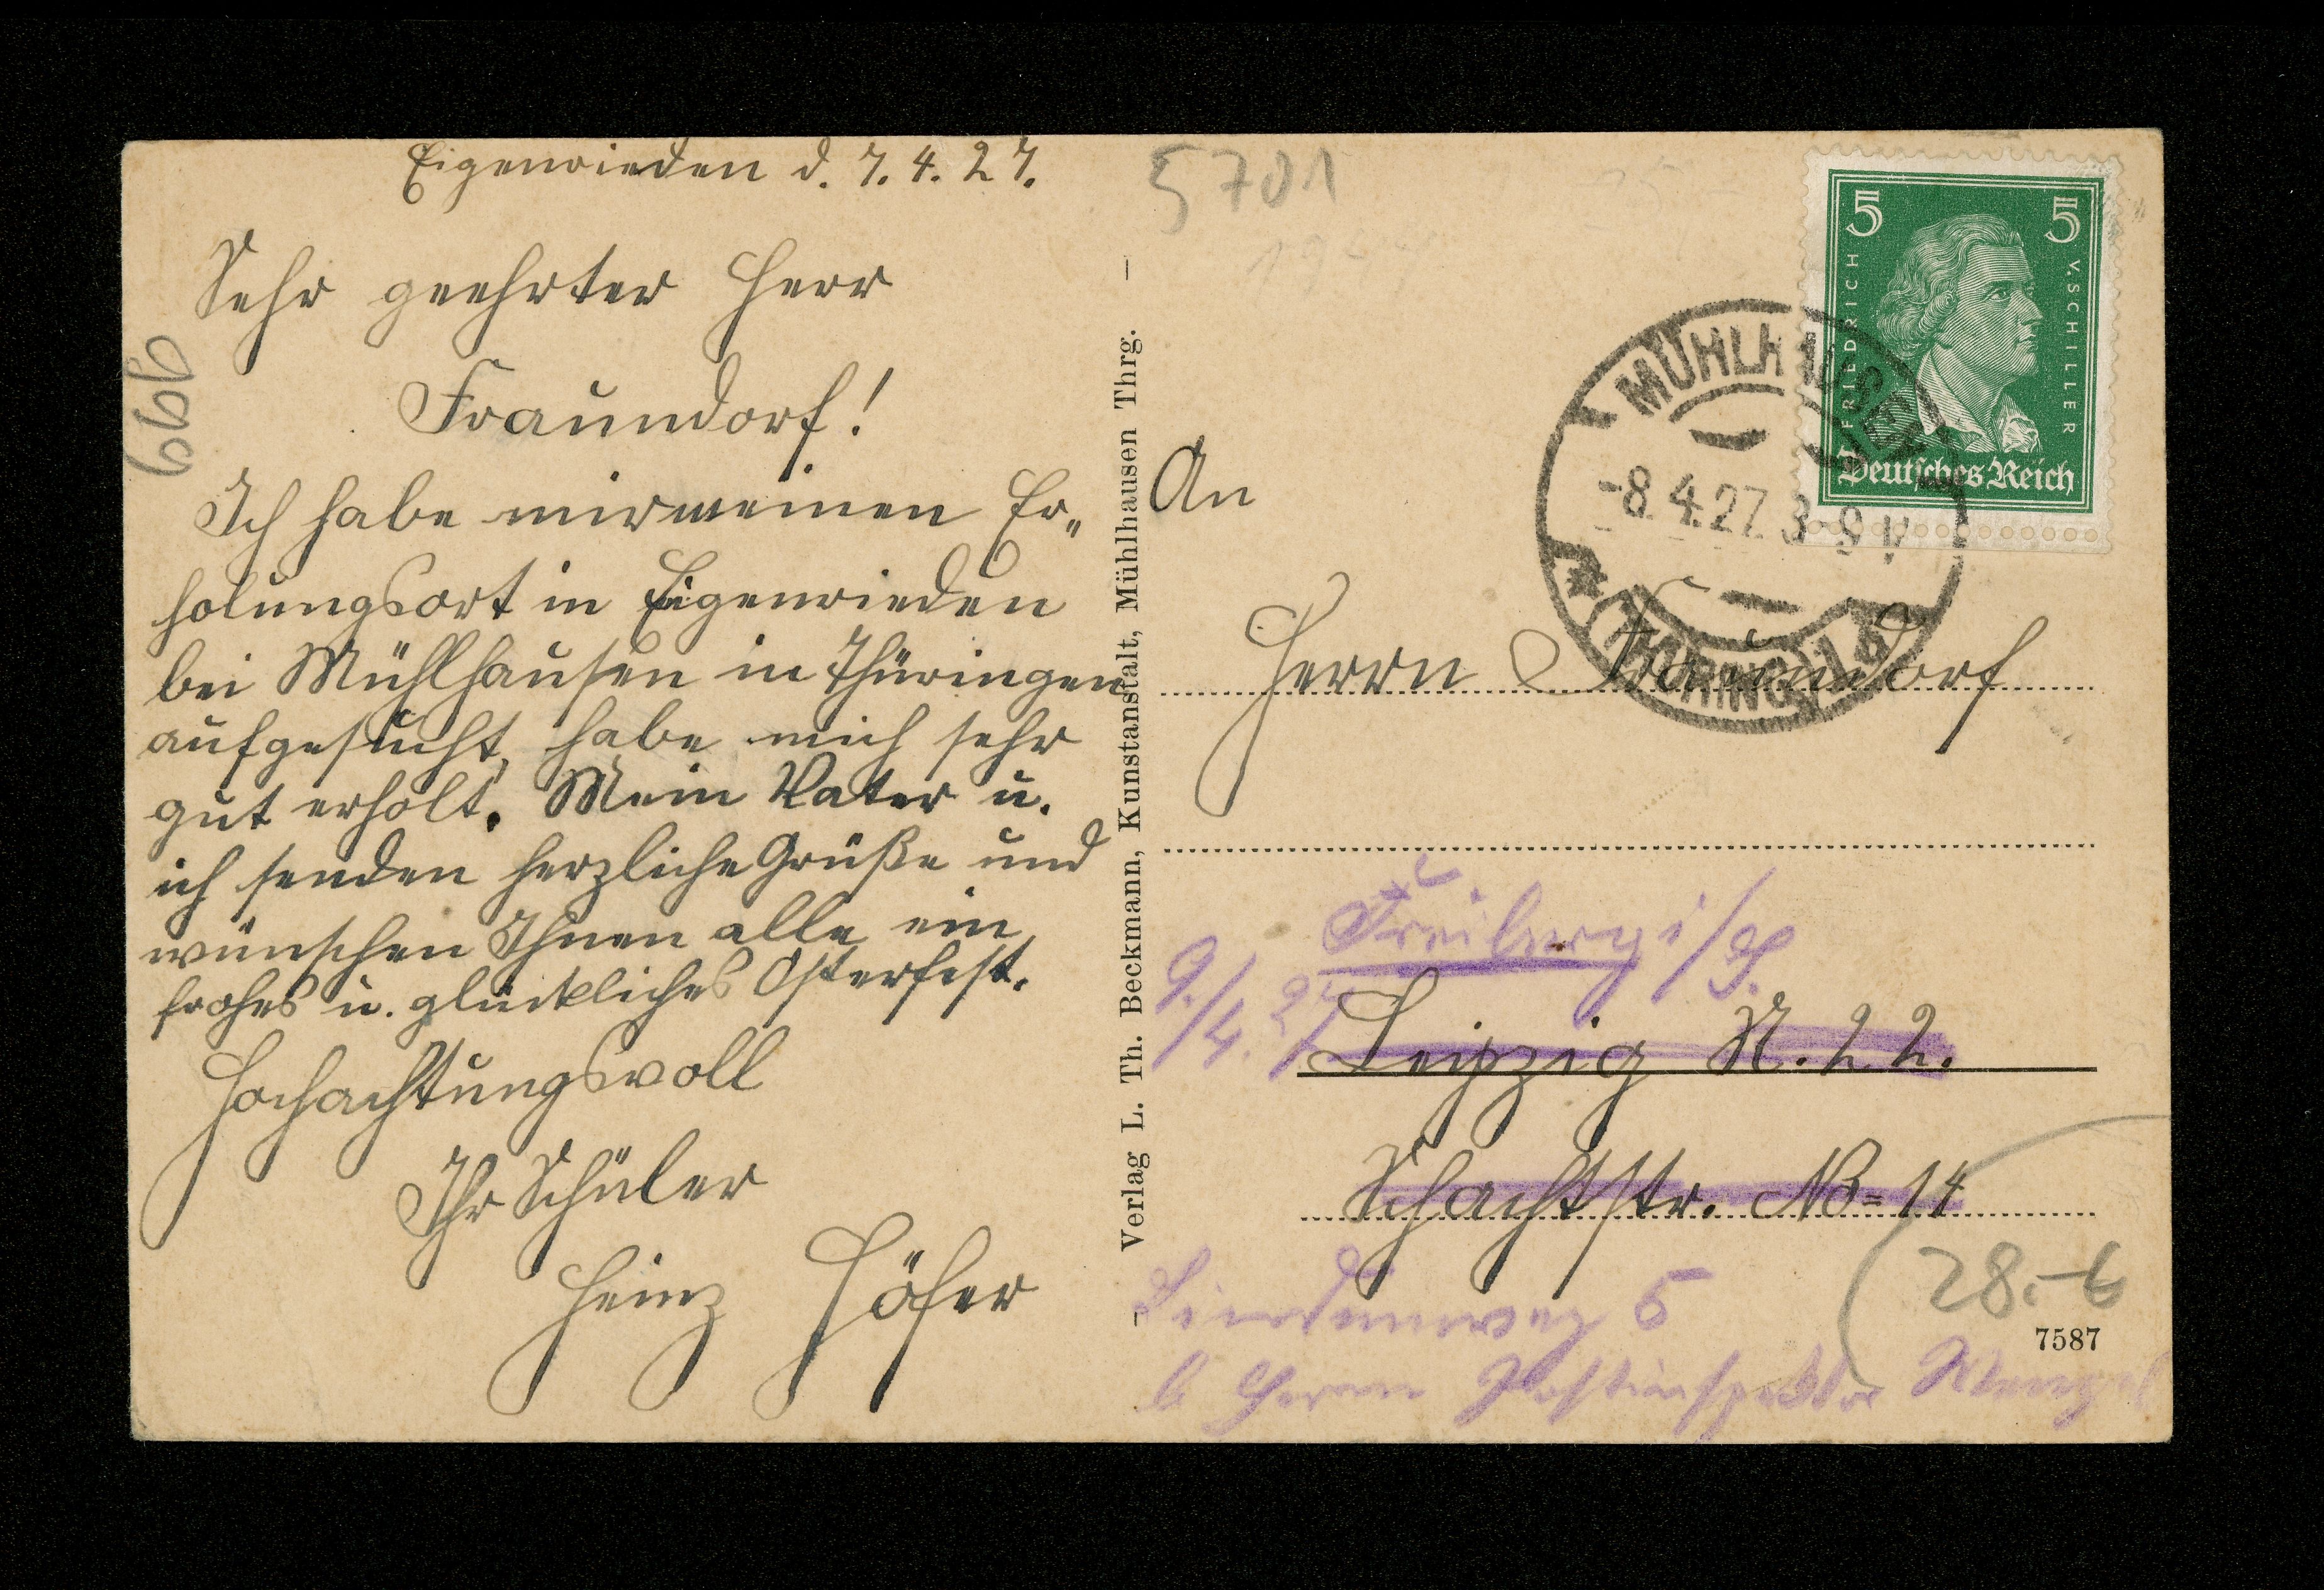 Eigenrieden d. 7. 4. 27.
Sehr geehrter Herr
Fraundorf!
Ich habe mir meinen Er„
holungsort in Eigenrieden
bei Mühlhausen in Thüringen
aufgesucht, habe mich sehr
gut erholt. Mein Vater u.
ich senden herzliche Grüße und
wünschen Ihnen alle ein
frohes u. glückliches Osterfest.
Hochachtungsvoll
Ihr Schüler
Heinz Höfer
999
— Verlag L. Th. Beckmann, Kunstanstalt, Mühlhausen Thrg. —
5701
5 5
FRIEDRICH V. SCHILLER
Deutsches Reich
MÜHLHAUSEN
-8.4.27. 8-9 V
* (THÜRING)
An
Herrn Fraundorf
Freiberg i/S.
9./4. 27
Leipzig N. 22.
Schachtstr. No= 14
Lindenweg 5
b Herrn Postinspektor Wenzel
28.-6
7587